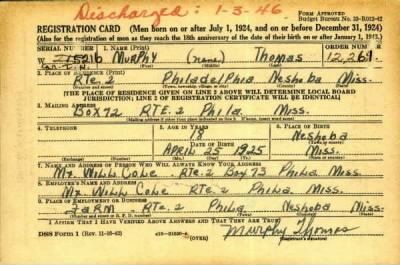 Discharged: 1-3-46.
FORM APPROVED
Budget Bureau No. 33-R012-42
REGISTRATION CARD (Men born on or after July 1, 1924, and on or before December 31, 1924)
(Also for the registration of men as they reach the 18th anniversary of the date of their birth on or after January 1, 1925.)
SERIAL NUMBER 1. NAME (Print) ORDER NUMBER
W 215216 MURPHY (none) Thomas 12,261
(First) (Middle) (Last)
2. PLACE OF RESIDENCE (Print)
Rte. 2 Philadelphia Neshoba Miss.
(Number and street) (Town, township, village or city) (County) (State)
[THE PLACE OF RESIDENCE GIVEN ON LINE 2 ABOVE WILL DETERMINE LOCAL BOARD
JURISDICTION; LINE 2 OF REGISTRATION CERTIFICATE WILL BE IDENTICAL]
3. MAILING ADDRESS
Box 72 RTE. 2 Phila Miss.
4. TELEPHONE 5. AGE IN YEARS 6. PLACE OF BIRTH
18 Neshoba
DATE OF BIRTH
APRIL 25 1925 Miss.
7. NAME AND ADDRESS OF PERSON WHO WILL ALWAYS KNOW YOUR ADDRESS
Mr. Will Cole Rte. 2 Box 73 Phila Miss.
8. EMPLOYER'S NAME AND ADDRESS
Mr. Will Cole RTE. 2 Phila Miss.
9. PLACE OF EMPLOYMENT OR BUSINESS
Farm Rte. 2 Phila Neshoba Miss.
(Number and street or R. F. D. number) (Town) (County) (State)
I AFFIRM THAT I HAVE VERIFIED ABOVE ANSWERS AND THAT THEY ARE TRUE.
DSS Form 1 (Rev. 11-16-42) (OVER) Murphy Thomas
(Registrant's signature)